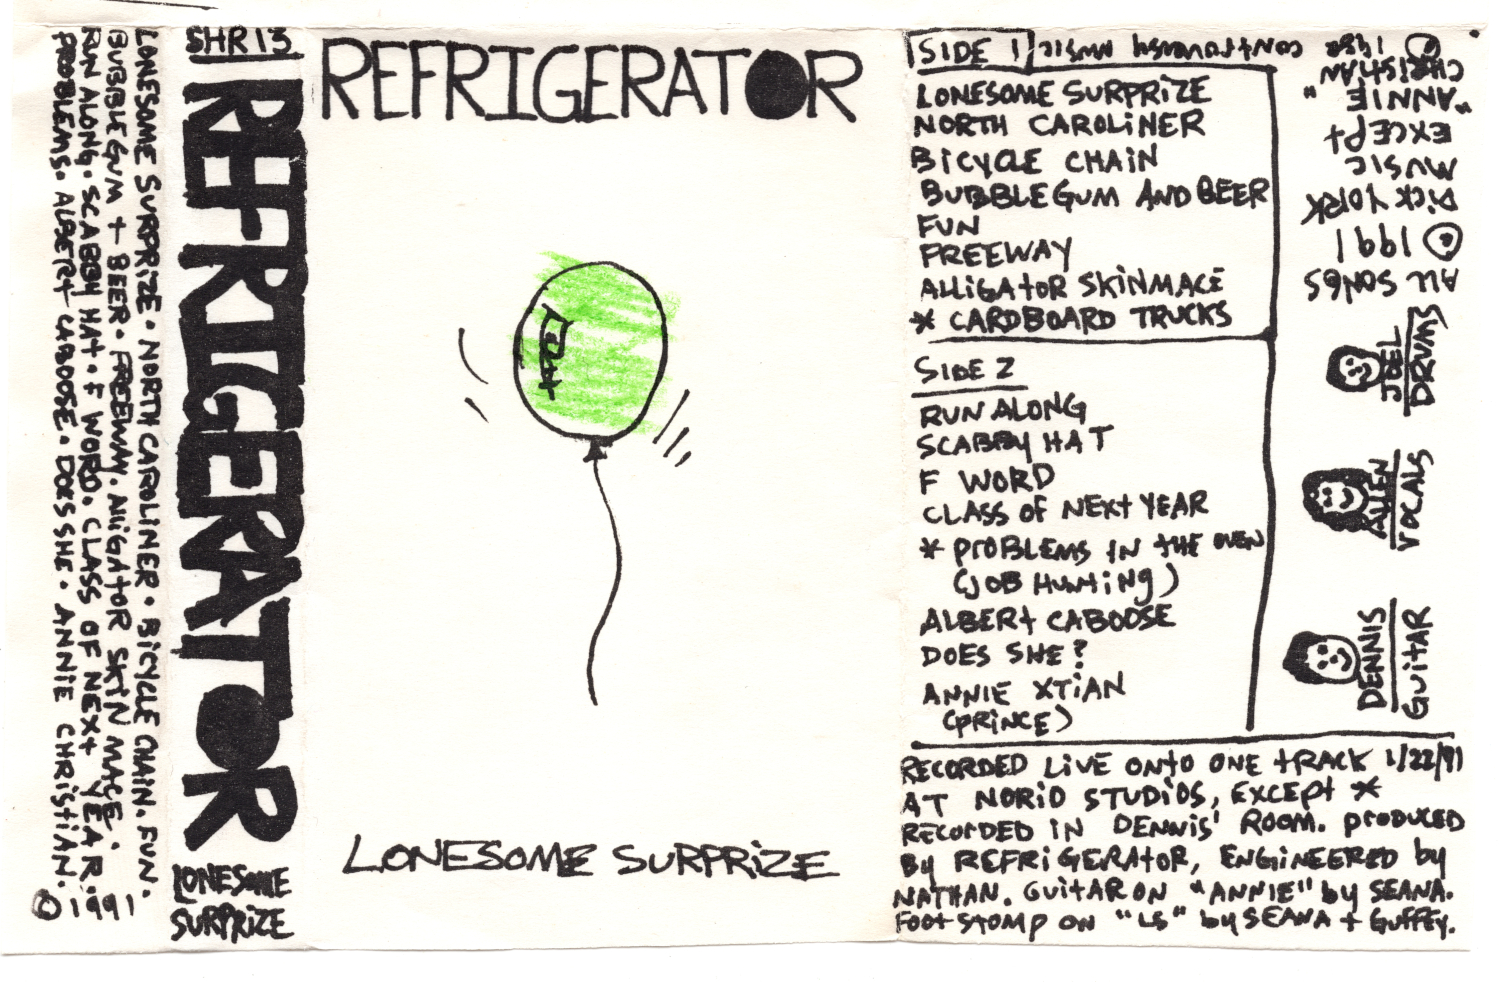 LONESOME SURPRIZE • NORTH CAROLINER • BICYCLE CHAIN. FUN.
BUBBLEGUM + BEER • FREEWAY. ALLIGATOR SKIN MACE.
RUN ALONG. SCABBY HAT. F WORD. CLASS OF NEXT YEAR.
PROBLEMS. ALBERT CABOOSE. DOES SHE. ANNIE CHRISTIAN.
© 1991
SHR13
REFRIGERATOR
LONESOME
SURPRIZE
REFRIGERATOR
LONESOME SURPRIZE
SIDE 1
LONESOME SURPRIZE
NORTH CAROLINER
BICYCLE CHAIN
BUBBLEGUM AND BEER
FUN
FREEWAY
ALLIGATOR SKINMACE
* CARDBOARD TRUCKS
SIDE 2
RUN ALONG
SCABBY HAT
F WORD
CLASS OF NEXT YEAR
* PROBLEMS IN THE OVEN
(JOB HUNTING)
ALBERT CABOOSE
DOES SHE?
ANNIE XTIAN
(PRINCE)
ALL SONGS
© 1991
DICK YORK
MUSIC
EXCEPT
"ANNIE
CHRISTIAN"
© 1981 CONTROVERSY MUSIC
JOEL
DRUMS
ALLEN
VOCALS
DENNIS
GUITAR
RECORDED LIVE ONTO ONE TRACK 1/22/91
AT NORIO STUDIOS, EXCEPT *
RECORDED IN DENNIS' ROOM. PRODUCED
BY REFRIGERATOR, ENGINEERED BY
NATHAN. GUITAR ON "ANNIE" BY SEANA.
FOOT STOMP ON "LS" BY SEANA + GUFFEY.